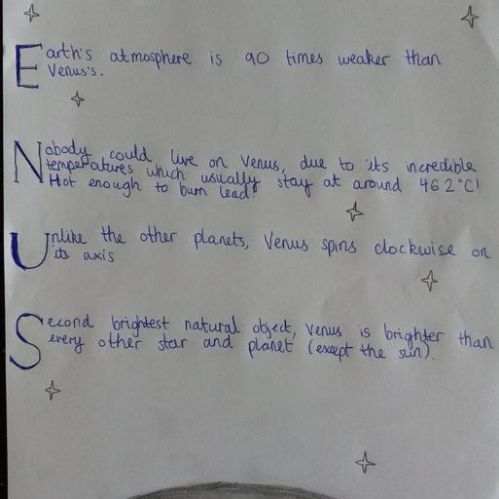 Earth's atmosphere is 90 times weaker than
Venus's.
Nobody could live on Venus, due to its incredible
temperatures which usually stay at around 462°C!
Hot enough to burn lead!
Unlike the other planets, Venus spins clockwise on
its axis
Second brightest natural object, Venus is brighter than
every other star and planet (except the sun).